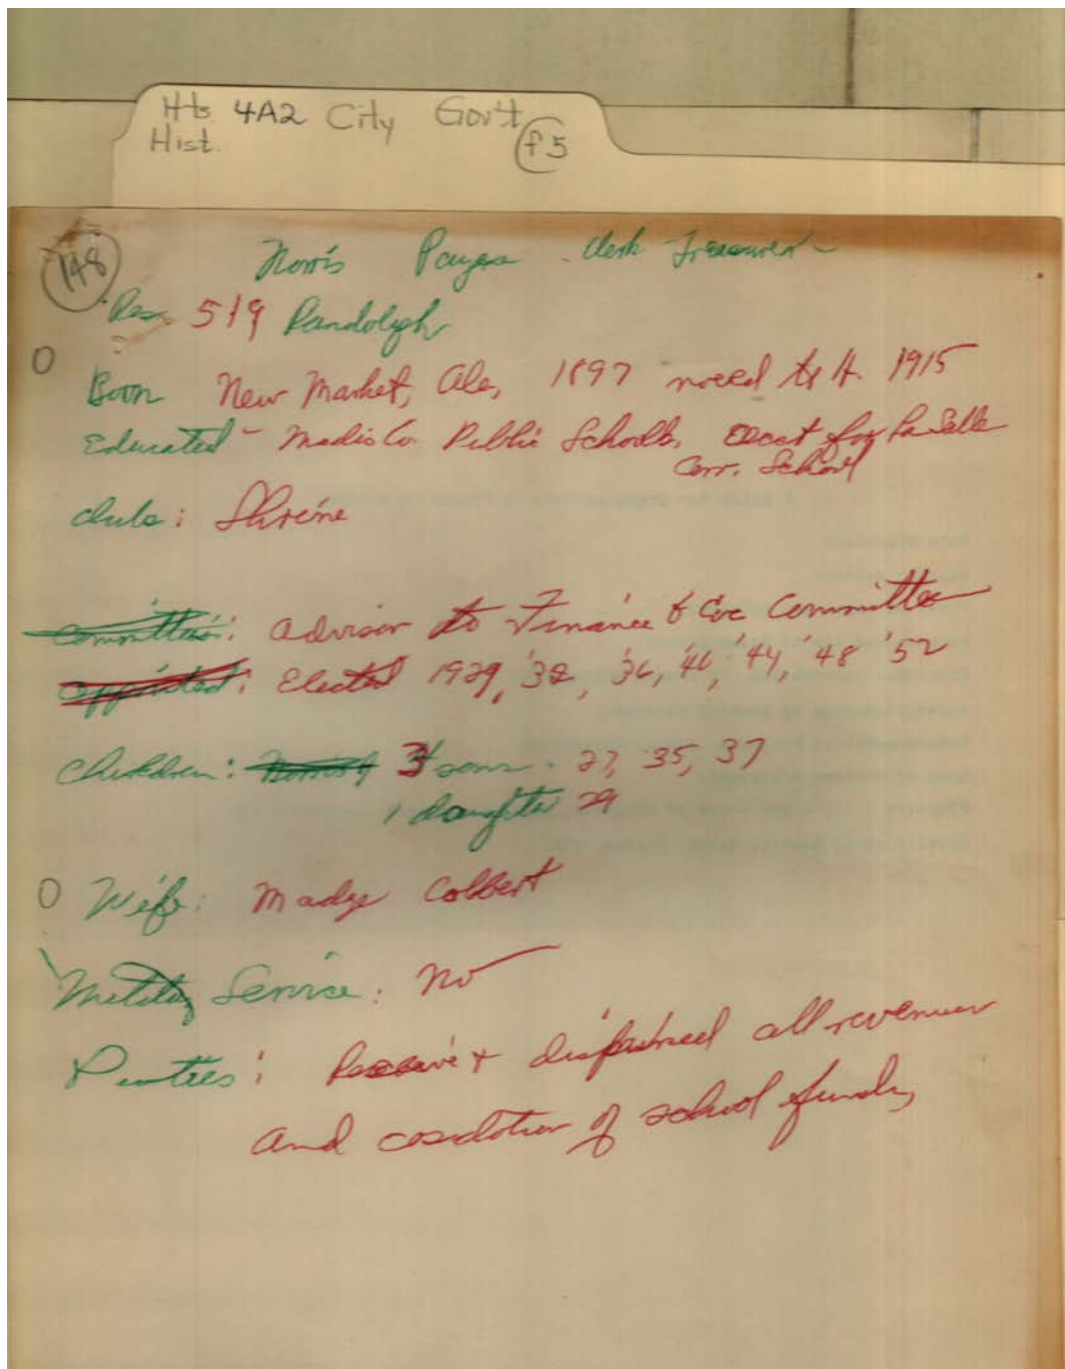 Hts. 4A2 City Gov't
Hist.
f5
148
Norris Payne - Clerk Treasurer -
Res. 519 Randolph
Born New Market, Ala, 1897 moved to H. 1915
Educated - Madis Co. Public Schools, except for LaSalle
Corr. School
clubs: Shrine
Committees: advisor to Finance & Committee
appointed: Elected 1929, '32, '36, '40, '44, '48 '52
Children: 3 sons - 27, 35, 37
1 daughter 29
Wife: Madge Colbert
Military Service: No
Duties: Receive & all revenues
and of school funds,